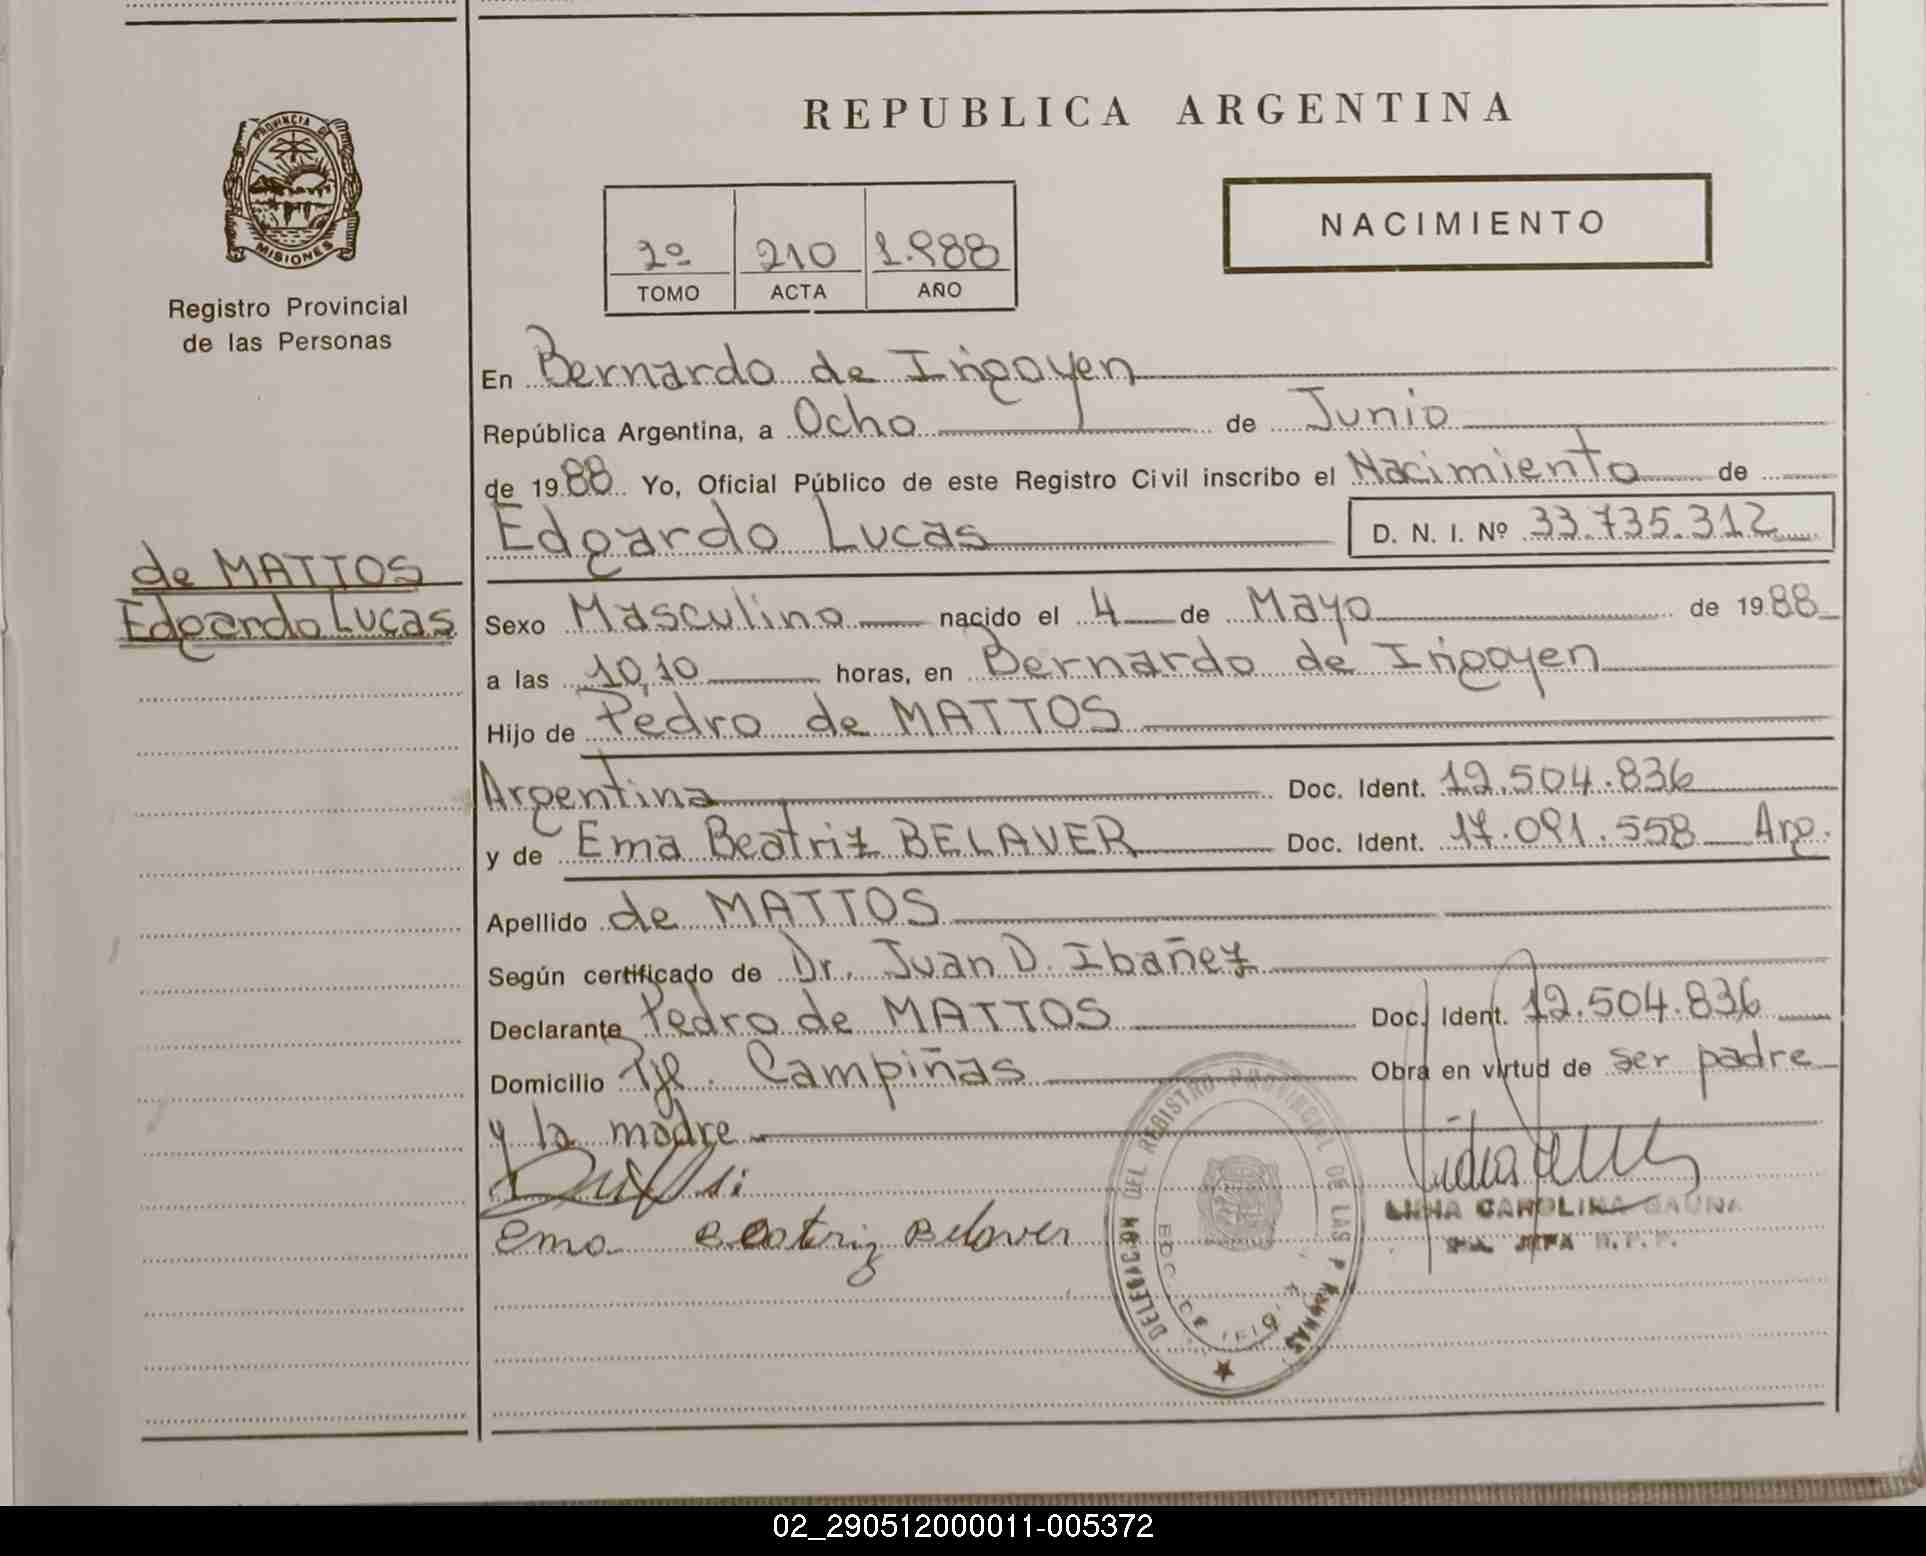 REPUBLICA ARGENTINA
PROVINCIA DE
MISIONES
Registro Provincial
de las Personas
NACIMIENTO
2º 210 1.988
TOMO ACTA AÑO
En Bernardo de Irigoyen
República Argentina, a Ocho de Junio
de 1988 Yo, Oficial Público de este Registro Civil inscribo el Nacimiento de
Edgardo Lucas D. N. I. Nº 33.735.312
de MATTOS
Edgardo Lucas
Sexo Masculino nacido el 4 de Mayo de 1988
a las 10,10 horas, en Bernardo de Irigoyen
Hijo de Pedro de MATTOS
Argentina Doc. Ident. 12.504.836
y de Ema Beatriz BELAVER Doc. Ident. 17.091.558 Arg.
Apellido de MATTOS
Según certificado de Dr. Juan D. Ibañez
Declarante Pedro de MATTOS Doc. Ident. 12.504.836
Domicilio Pje. Campiñas Obra en virtud de ser padre
y la madre
Ema Beatriz Belaver
DELEGACION DEL REGISTRO PROVINCIAL DE LAS PERSONAS
CAROLINA GAUNA
JEFA R.P.P.
02_290512000011-005372